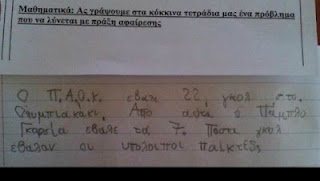 Μαθηματικά: Ας γράψουμε στα κόκκινα τετράδια μας ένα πρόβλημα
που να λύνεται με πράξη αφαίρεσης
Ο Π.Α.Ο.Κ. εβαλε 22 γκολ στο
Ολυμπιακακι. Απο αυτα ο Πάμπλο
Γκαρσία εβαλε τα 7. Πόσα γκολ
εβαλαν οι υπολοιποι παίκτες;